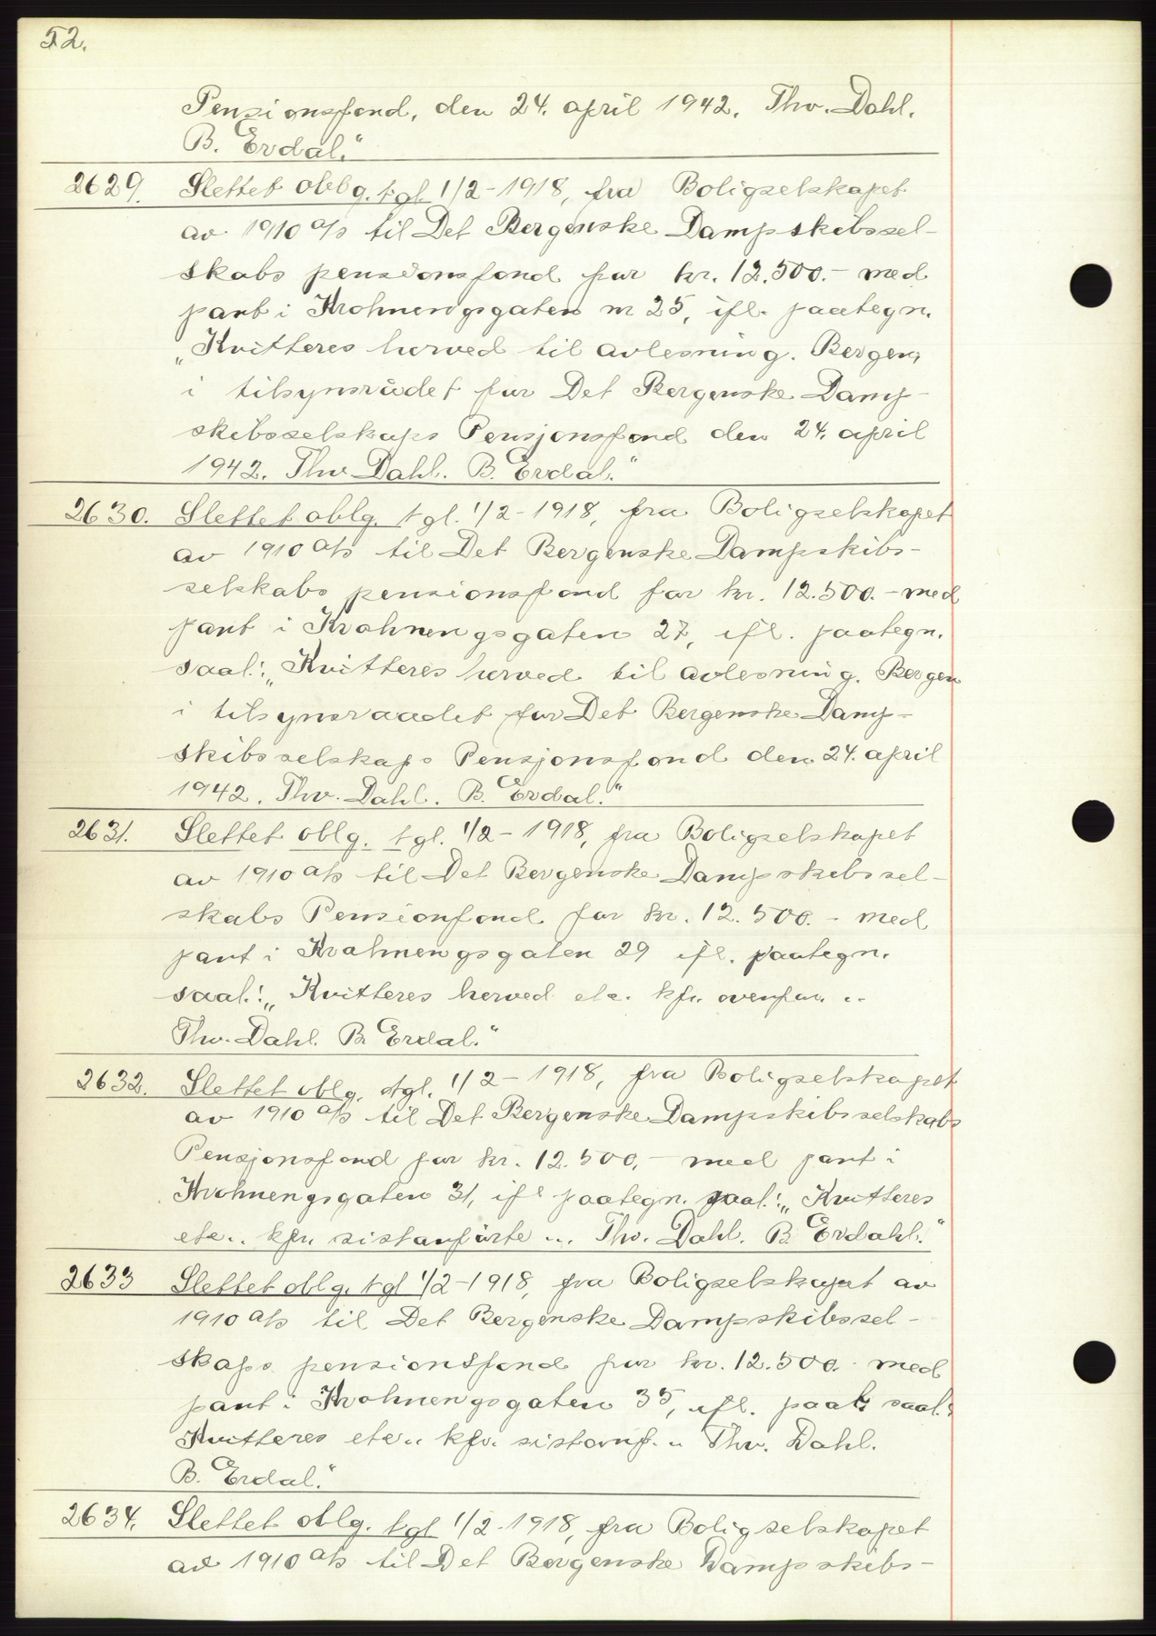 52.
Pensionsfond, den 24. april 1942. Thv. Dahl.
B. Erdal."
2629. Slettet oblg. tgl 1/2-1918, fra Boligselskapet
av 1910 a/s til Det Bergenske Dampskibssel-
skabs pensionsfond for kr. 12.500.- med
pant i Krohnengsgaten nr 25, ifl. paategn.
„Kvitteres herved til avlesning. Bergen,
i tilsynsrådet for Det Bergenske Damp-
skibsselskaps Pensjonsfond den 24. april
1942. Thv. Dahl. B. Erdal."
2630. Slettet oblg. tgl. 1/2-1918, fra Boligselskapet
av 1910 a/s til Det Bergenske Dampskibs-
selskabs pensionsfond for kr. 12.500.- med
pant i Krohnengsgaten 27, ifl. paategn.
saal: „Kvitteres herved til avlesning. Bergen
i tilsynsraadet for Det Bergenske Damp-
skibsselskaps Pensjonsfond den 24. april
1942. Thv. Dahl. B. Erdal."
2631. Slettet oblg. tgl. 1/2-1918, fra Boligselskapet
av 1910 a/s til Det Bergenske Dampskibssel-
skabs Pensionfond for kr. 12.500.- med
pant i Krohnengsgaten 29 ifl. paategn.
saal: „Kvitteres herved etc. kfr. ovenfor. ..
Thv. Dahl. B. Erdal."
2632. Slettet oblg. tgl. 1/2-1918, fra Boligselskapet
av 1910 a/s til Det Bergenske Dampskibsselskabs
Pensjonsfond for kr. 12.500,- med pant i
Krohnengsgaten 31, ifl paategn. saal: „Kvitteres
etc.. kfr. sistanförte ... Thv. Dahl. B. Erdahl."
2633 Slettet oblg. tgl 1/2-1918, fra Boligselskapet av
1910 a/s til Det Bergenske Dampskibssel-
skaps pensionsfond for kr. 12.500. med
pant i Krohnengsgaten 35, ifl. paat. saal:
Kvitteres etc.. kfr. sistanf. .. Thv. Dahl.
B. Erdal."
2634. Slettet oblg. tgl 1/2-1918, fra Boligselskapet
av 1910 a/s til Det Bergenske Dampskibs-